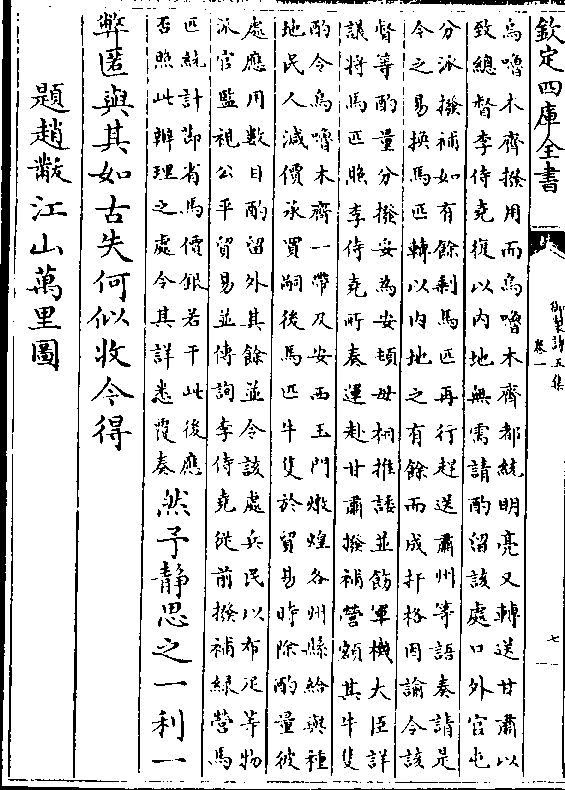 欽定四庫全書
御製詩五集
卷一
七
烏嚕木齊撥用而烏嚕木齊都統明亮又轉送甘肅以
致總督李侍堯復以內地無需請酌留該處口外官屯
分派撥補如有餘剩馬匹再行趕送肅州等語奏請是
令之易換馬匹轉以內地之有餘而成扞格因諭令該
督等酌量分撥妥為安頓毋相推諉並飭軍機大臣詳
議將馬匹照李侍堯所奏運赴甘肅撥補營額其牛隻
酌令烏嚕木齊一帶及安西玉門燉煌各州縣給與種
地民人減價承買嗣後馬匹牛隻於貿易時除酌量彼
處應用數目酌留外其餘並令該處兵民以布疋等物
派官監視公平貿易並傳詢李侍堯從前撥補綠營馬
匹統計節省馬價銀若干此後應
否照此辦理之處令其詳悉覆奏
然予靜思之一利一
弊匿與其如古失何似收今得
題趙黻江山萬里圖